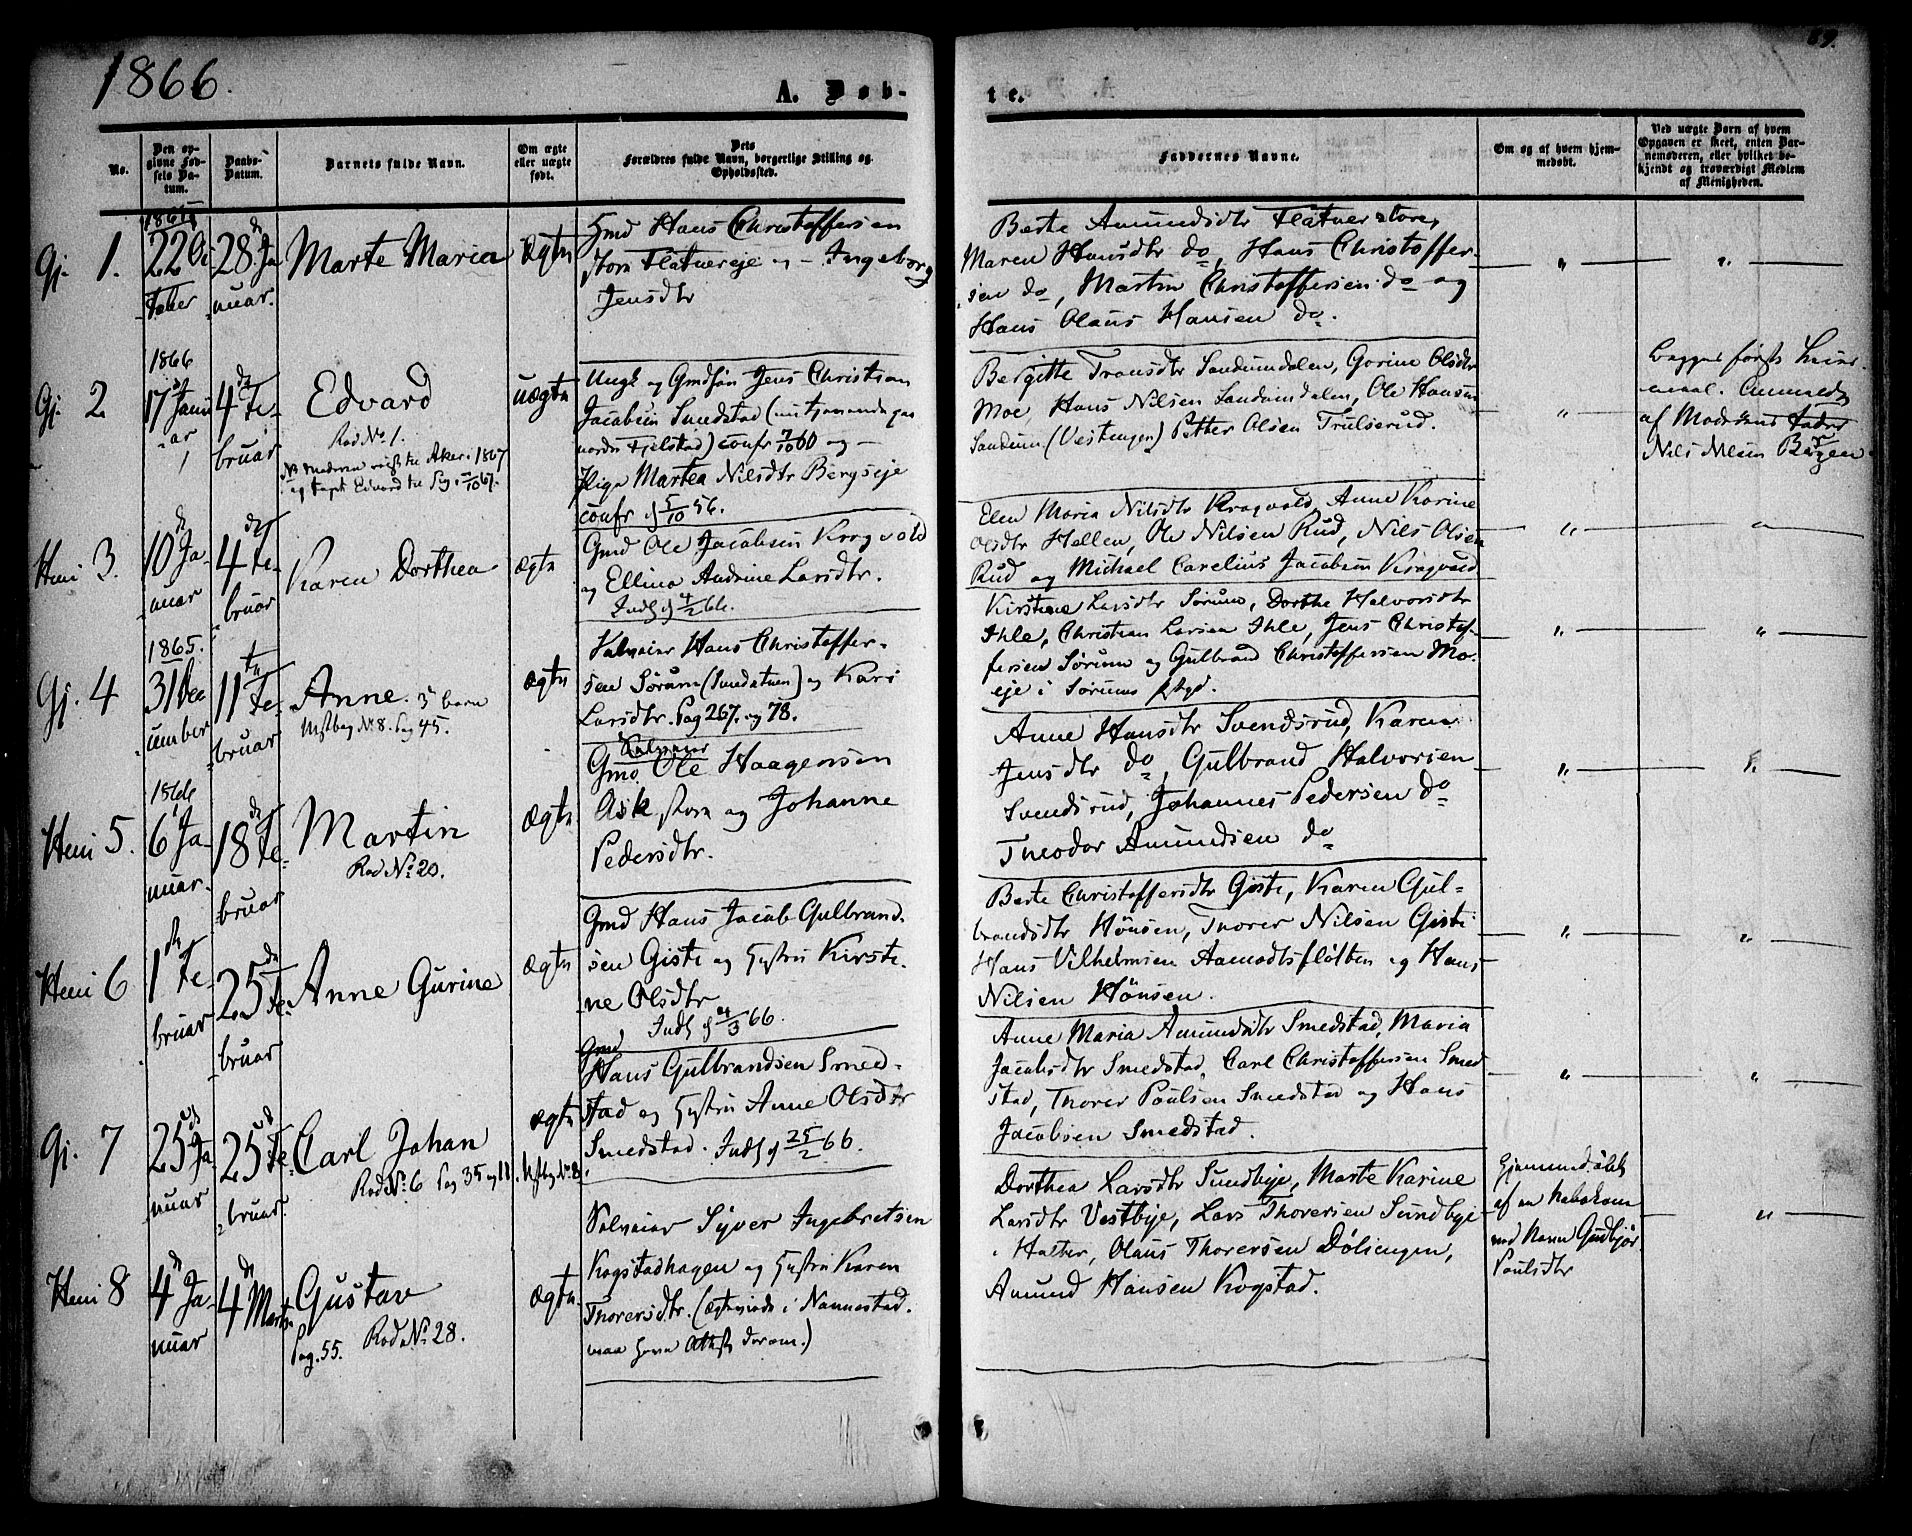 1866.
69.
A. Døb-
te.
No.
Den opgivne Fødsels Datum.
Daabs-Datum.
Barnets fulde Navn.
Om ægte eller uægte født.
Dets Forældres fulde Navn, borgerlige Stilling og Opholdssted.
Faddernes Navne.
Om og af hvem hjemmedøbt.
Ved uægte Børn af hvem Opgaven er skeet, enten Barnemoderen, eller hvilket bekjendt og troværdigt Medlem af Menigheden.
Gj. 1.
1865
22 Oc
tober
28de Ja
nuar.
Marte Maria
ægte
Gmd Hans Christoffersen
Flatnereje og Ingeborg
Jensdtr
Berte Amundsdtr Flatner store,
Maren Hansdtr do, Hans Christoffer-
sen do, Martin Christoffersen do og
Hans Olaus Hansen do.
Gj. 2
1866
17 Janu
ar
4de Fe-
bruar
Edvard
Rod No 1.
Aker i 1867
uægte
Ungk og Gmdsøn Jens Christian
Jacobsen Smedstad
Fjelstad) confr 7/10 60 og
Pige Martea Nilsdtr Bergseje
confr 5/10 56.
Bergitte Transdtr Sandumdalen, Gorine Olsdtr
Moe Hans Nilsen Sandumdalen, Ole Hansen
Sandum (Vestengen) Petter Olsen Trulserud.
Begges første Leier-
maal. Anmeldt
af Moderens Fader
Nils Nilsen
Hem 3.
10de Ja-
nuar
4de Fe-
bruar
Karen Dorthea
ægte
Gmd Ole Jacobsen Kragvold
og Ellina Andrine Larsdtr.
Indl 4/2 66.
Elen Maria Nilsdtr Kragvold, Anne Karine
Olsdtr Hellen, Ole Nilsen Rud, Nils Olsen
Rud og Michael Carelius Jacobsen Kragvold
Gj. 4
1865.
31 De
cember
11te Fe-
bruar
Anne. 3de barn
No. 8. Pag 45.
ægte
Selveier Hans Christoffer-
sen Sørum og Kari
Larsdtr. Pag 267. og 78.
Kirstine Larsdtr Sørum, Dorthe Halvorsdtr
Ihle, Christian Larsen Ihle, Jens Christof-
fersen Sørum og Gulbrand Christoffersen Mo-
eje i Sørums
Hem 5.
1866
6 Ja-
nuar.
18de Fe-
bruar
Martin
Rod No. 20.
ægte
Selveier
Gmd Ole Haagensen
Ask store og Johanne
Pedersdtr.
Anne Hansdtr Svendsrud, Karen
Jensdtr do, Gulbrand Halvorsen
Svendsrud, Johannes Pedersen do
Theodor Amundsen do
Hem 6
1ste Fe-
bruar
25de Fe-
bruar
Anne Gurine
ægte
Gmd Hans Jacob Gulbrand-
sen Giste og Hustru Kirste-
ne Olsdtr
Indl 66.
Berte Christoffersdtr Giste, Karen Gul-
brandsdtr Hønsen, Thorer Nilsen Giste
Hans Vilhelmsen Aamodtsfløtten og Hans
Nilsen Hønsen.
Gj. 7
25de Ja-
nuar
25de Fe-
bruar.
Carl Johan
Rod No. 6 Pag 35
ægte
Gmd
Hans Gulbrandsen Smed-
stad og Hustru Anne Olsdtr
Smedstad. Indl 25/2 66.
Anne Maria Amundsdtr Smedstad, Maria
Jacobsdtr Smedstad, Carl Christoffersen Smed
stad, Thorer Poulsen Smedstad og Hans
Jacobsen Smedstad.
Hem 8
4de Ja-
nuar
4de Marts
Gustav
Pag. 55. Rod No. 28.
ægte
Selveier Syver Ingebretsen
Kogstadhagen og Hustru Karen
Thorersdtr. (Ægteviede i Nannestad.
maa have Attest derom.)
Dorthea Larsdtr Sundbye, Marte Karine
Larsdtr Vestbye, Lars Thorersen Sundbye
Holter, Olaus Thorersen Døliengen,
Amund Hansen Kogstad.
Hjemmedøbt
af en Nabokone
med Navn Gudbjør
Poulsdtr